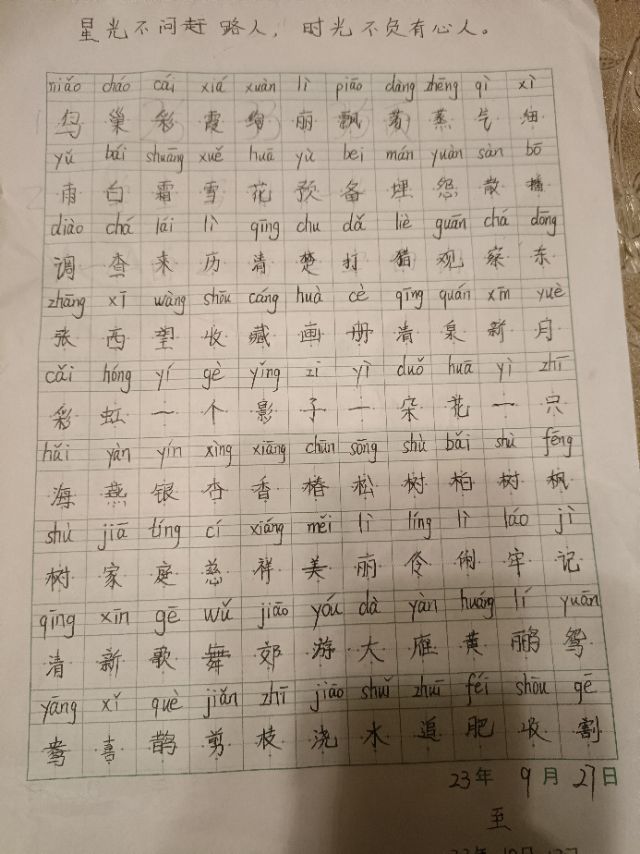 星光不问赶路人，时光不负有心人。
niǎo cháo cǎi xiá xuàn lì piāo dàng zhēng qì xì
鸟 巢 彩 霞 绚 丽 飘 荡 蒸 气 细
yǔ bái shuāng xuě huā yù bei mán yuàn sàn bō
雨 白 霜 雪 花 预 备 埋 怨 散 播
diào chá lái lì qīng chu dǎ liè guān chá dōng
调 查 来 历 清 楚 打 猎 观 察 东
zhāng xī wàng shōu cáng huà cè qīng quán xīn yuè
张 西 望 收 藏 画 册 清 泉 新 月
cǎi hóng yí gè yǐng zi yì duǒ huā yì zhī
彩 虹 一 个 影 子 一 朵 花 一 只
hǎi yàn yín xìng xiāng chūn sōng shù bǎi shù fēng
海 燕 银 杏 香 椿 松 树 柏 树 枫
shù jiā tíng cí xiáng měi lì líng lì láo jì
树 家 庭 慈 祥 美 丽 伶 俐 牢 记
qīng xīn gē wǔ jiāo yóu dà yàn huáng lí yuān
清 新 歌 舞 郊 游 大 雁 黄 鹂 鸳
yāng xǐ què jiǎn zhī jiāo shuǐ zhuī féi shōu gē
鸯 喜 鹊 剪 枝 浇 水 追 肥 收 割
23年 9月 27日
至